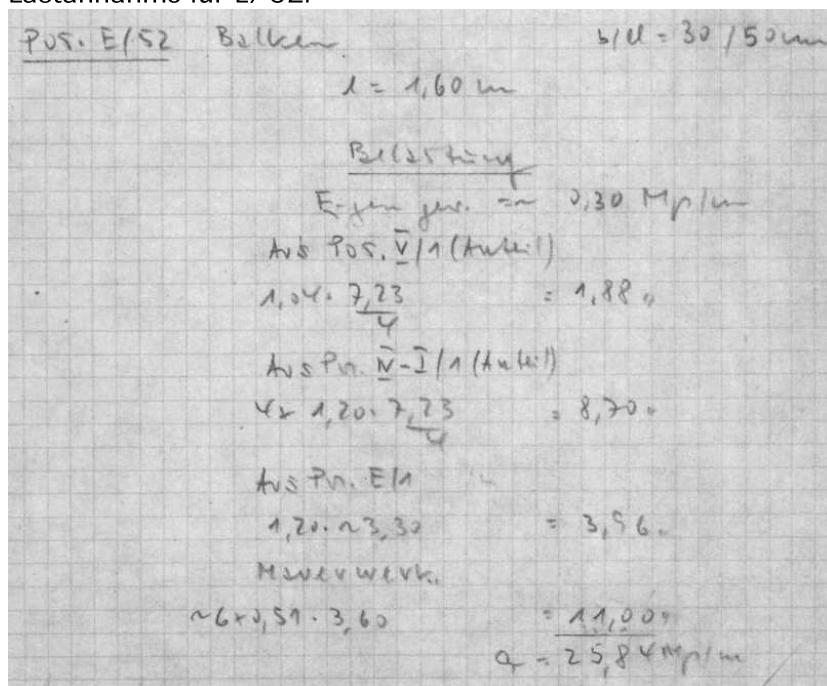 Pos. E/S2 Balken b/d = 30/50 cm
l = 1,60 m
Belastung
Eigengew. =~ 0,30 Mp/m
Aus Pos. V/1 (Anteil)
1,04 · 7,23/4 = 1,88 "
Aus Pos. IV-I/1 (Anteil)
4x 1,20 · 7,23/4 = 8,70 "
Aus Pos. E/1
1,20 · ~3,30 = 3,96 "
Mauerwerk.
~6x0,51 · 3,60 = 11,00 "
q = 25,84 Mp/m